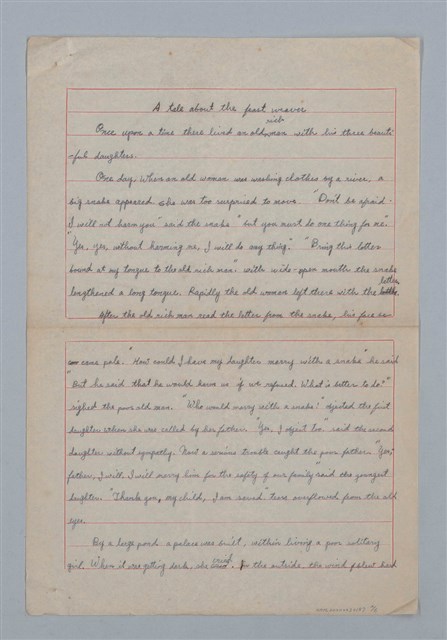 A tale about the fast weaver
rich
Once upon a time there lived an old man with his three beauti-
-ful daughters.
One day, When an old woman was washing clothes by a river, a
big snake appeared she was too surprised to move. "Don't be afraid-
I will not harm you" said the snake "but you must do one thing for me."
"Yes, yes, without harming me, I will do any thing." "Bring this letter
bound at my tongue to the old rich man." with wide-open mouth the snake
letter
lengthened a long tongue. Rapidly the old woman left there with the
After the old rich man read the letter from the snake, his face
came pale. "How could I have my daughter marry with a snake" he said
"But he said that he would harm us if we refused. What is better to do?"
sighed the poor old man. "Who would marry with a snake!" objected the first
daughter whom she was called by her father. "Yes, I object too." said the second
daughter without sympathy. Next a serious tremble caught the poor father. "Yes,
father, I will. I will marry him for the safety of our family" said the youngest
daughter. "Thank you, my child, I am saved" tears overflowed from the old
eyes.
By a large pond a palace was built, within living a poor solitary
girl. When it was getting dark, she cried. In the outside, the wind blew hard